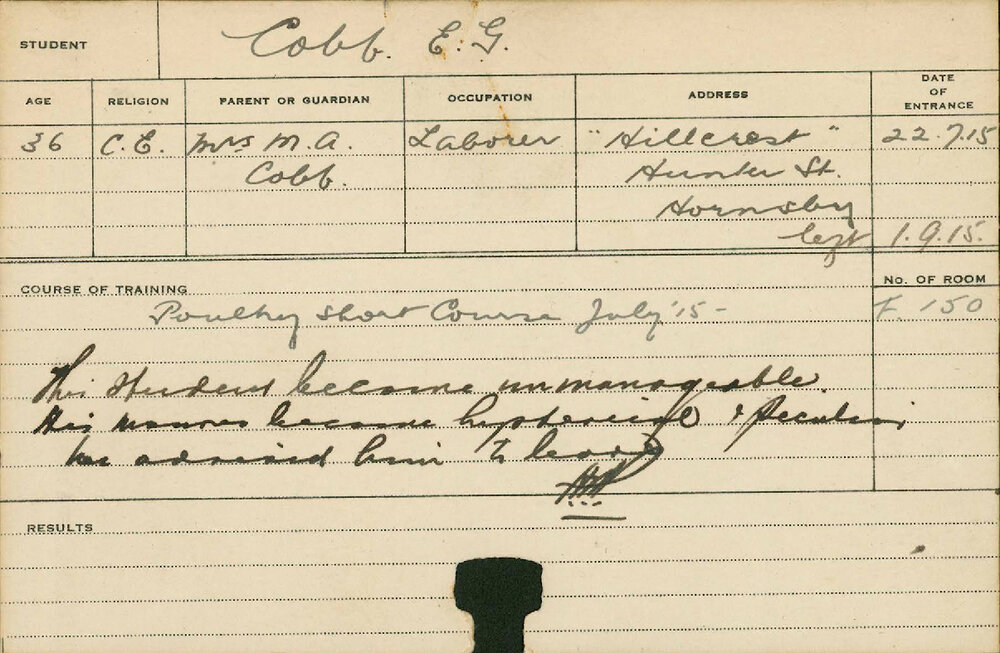 STUDENT Cobb. E. G.
AGE RELIGION PARENT OR GUARDIAN OCCUPATION ADDRESS DATE OF ENTRANCE
36 C.E. Mrs M. A. Laborer "Hillcrest" 22.7.15
Cobb. Hunter St.
Hornsby
left 1.9.15.
COURSE OF TRAINING No. OF ROOM
Poultry Short Course July '15 - F. 150
This student became unmanageable.
His manner became hysterical & peculiar
We advised him to leave
RESULTS